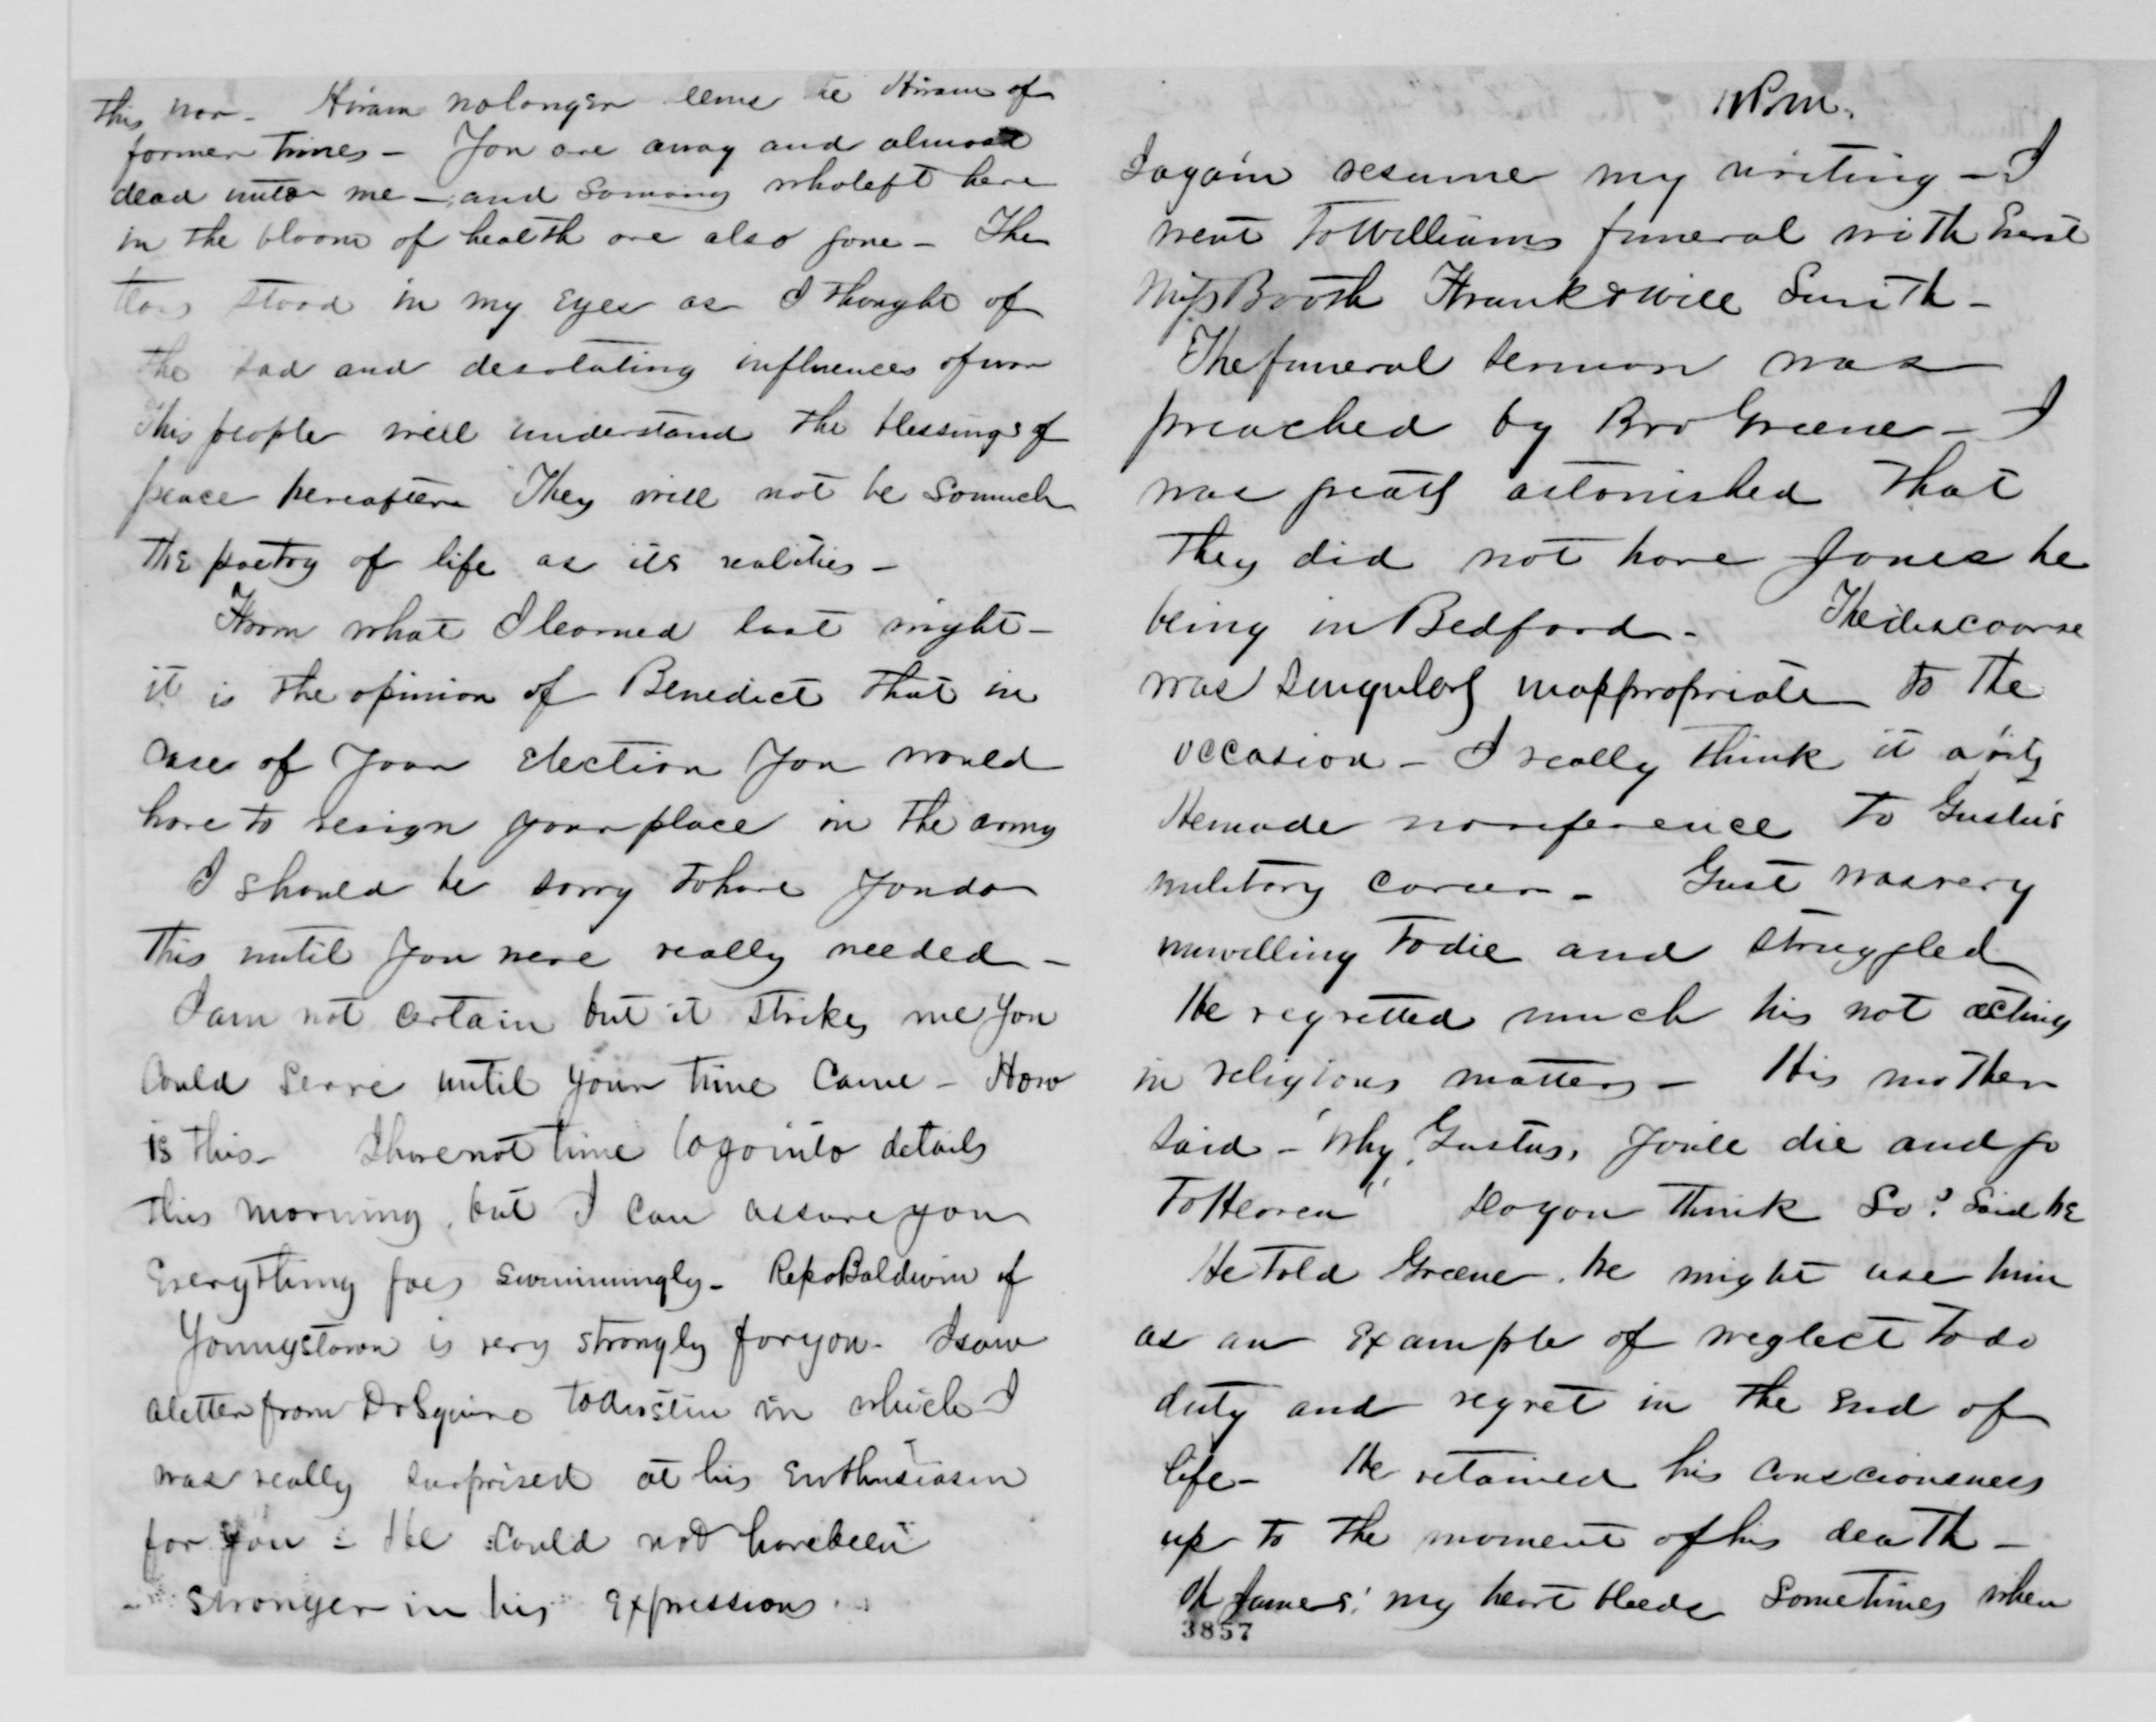 this war - Hiram no longer seems the Hiram of
former times - You are away and almost
dead unto me - and so many who left here
in the bloom of health are also gone - The
tears stood in my eyes as I thought of
the sad and desolating influences of war
This people will understand the blessings of
peace hereafter They will not be so much
the poetry of life as its realities -
From what I learned last night -
it is the opinion of Benedict that in
case of your election you would
have to resign your place in the army
I should be sorry to have you do
this until you were really needed -
I am not certain but it strikes me you
could serve until your time came - How
is this - I have not time to go into details
this morning, but I can assure you
Everything goes swimmingly - Baldwin of
Youngstown is very strongly for you - I saw
a letter from Dr Squire to Austin in which I
was really surprised at his Enthusiasm
for you - He could not have been
stronger in his expressions.
PM.
I again resume my writing - I
went to Williams funeral with
Miss Booth Frank & Will Smith -
The funeral sermon was
preached by Bro Greene - I
was greatly astonished that
they did not have Jones he
being in Bedford - The discourse
was singularly inappropriate to the
occasion - I really think it a pity
He made no reference to Gustus's
military career - Gust was very
unwilling to die and struggled
He regretted much his not acting
in religious matters - His mother
said - "Why, Gustus, you'll die and go
to Heaven" Do you think so? said he
He told Greene he might use him
as an Example of neglect to do
duty and regret in the end of
life - He retained his consciousness
up to the moment of his death -
Oh James! my heart bleeds sometimes when
3857